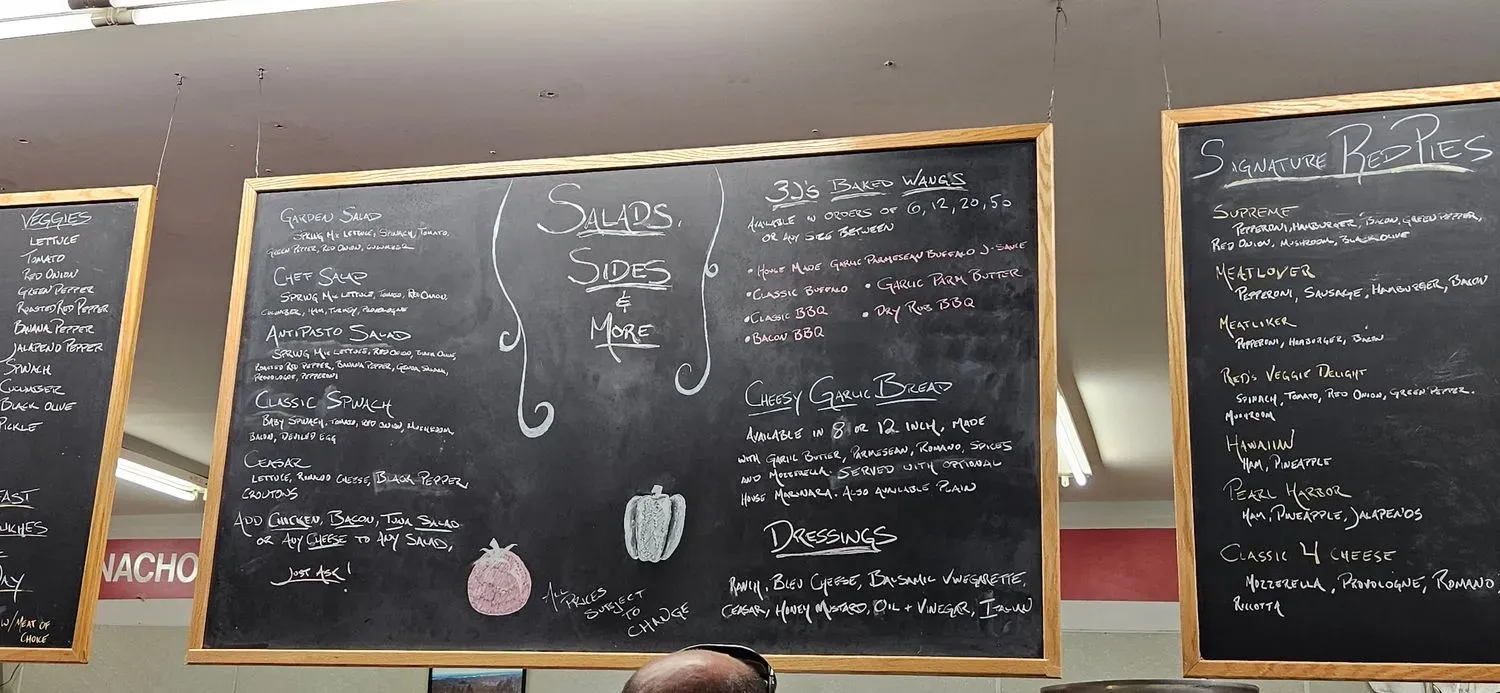 VEGGIES
LETTUCE
TOMATO
RED ONION
GREEN PEPPER
ROASTED RED PEPPER
BANANA PEPPER
JALAPENO PEPPER
SPINACH
CUCUMBER
BLACK OLIVE
PICKLE
W/ MEAT OF
CHOICE
NACHO
GARDEN SALAD
SPRING MIX LETTUCE, SPINACH, TOMATO,
GREEN PEPPER, RED ONION, CUCUMBER
CHEF SALAD
SPRING MIX LETTUCE, TOMATO, RED ONION,
CUCUMBER, HAM, TURKEY, PROVOLOGNE
ANTIPASTO SALAD
SPRING MIX LETTUCE, RED ONION, BLACK OLIVE,
ROASTED RED PEPPER, BANANA PEPPER, GENOA SALAMI,
PROVOLOGNE, PEPPERONI
CLASSIC SPINACH
BABY SPINACH, TOMATO, RED ONION, MUSHROOM,
BACON, DEVILED EGG
CEASAR
LETTUCE, ROMANO CHEESE, BLACK PEPPER
CROUTONS
ADD CHICKEN, BACON, TUNA SALAD
OR ANY CHEESE TO ANY SALAD,
JUST ASK!
SALADS,
SIDES
&
MORE
ALL PRICES
SUBJECT
TO
CHANGE
3J'S BAKED WANGS
AVAILABLE IN ORDERS OF 6, 12, 20, 50
OR ANY SIZE BETWEEN
• HOUSE MADE GARLIC PARMESEAN BUFFALO J-SAUCE
• CLASSIC BUFFALO • GARLIC PARM BUTTER
• CLASSIC BBQ • DRY RUB BBQ
• BACON BBQ
CHEESY GARLIC BREAD
AVAILABLE IN 8 OR 12 INCH. MADE
WITH GARLIC BUTTER, PARMESEAN, ROMANO, SPICES
AND MOZZERELLA. SERVED WITH OPTIONAL
HOUSE MARINARA. ALSO AVAILABLE PLAIN
DRESSINGS
RANCH, BLEU CHEESE, BALSAMIC VINEGARETTE,
CEASAR, HONEY MUSTARD, OIL + VINEGAR, ITALIAN
SIGNATURE RED PIES
SUPREME
PEPPERONI, HAMBURGER, BACON, GREEN PEPPER,
RED ONION, MUSHROOM, BLACK OLIVE
MEATLOVER
PEPPERONI, SAUSAGE, HAMBURGER, BACON
MEATLIKER
PEPPERONI, HAMBURGER, BACON
RED'S VEGGIE DELIGHT
SPINACH, TOMATO, RED ONION, GREEN PEPPER.
MUSHROOM
HAWAIIAN
HAM, PINEAPPLE
PEARL HARBOR
HAM, PINEAPPLE, JALAPENOS
CLASSIC 4 CHEESE
MOZZERELLA, PROVOLOGNE, ROMANO
RICCOTTA